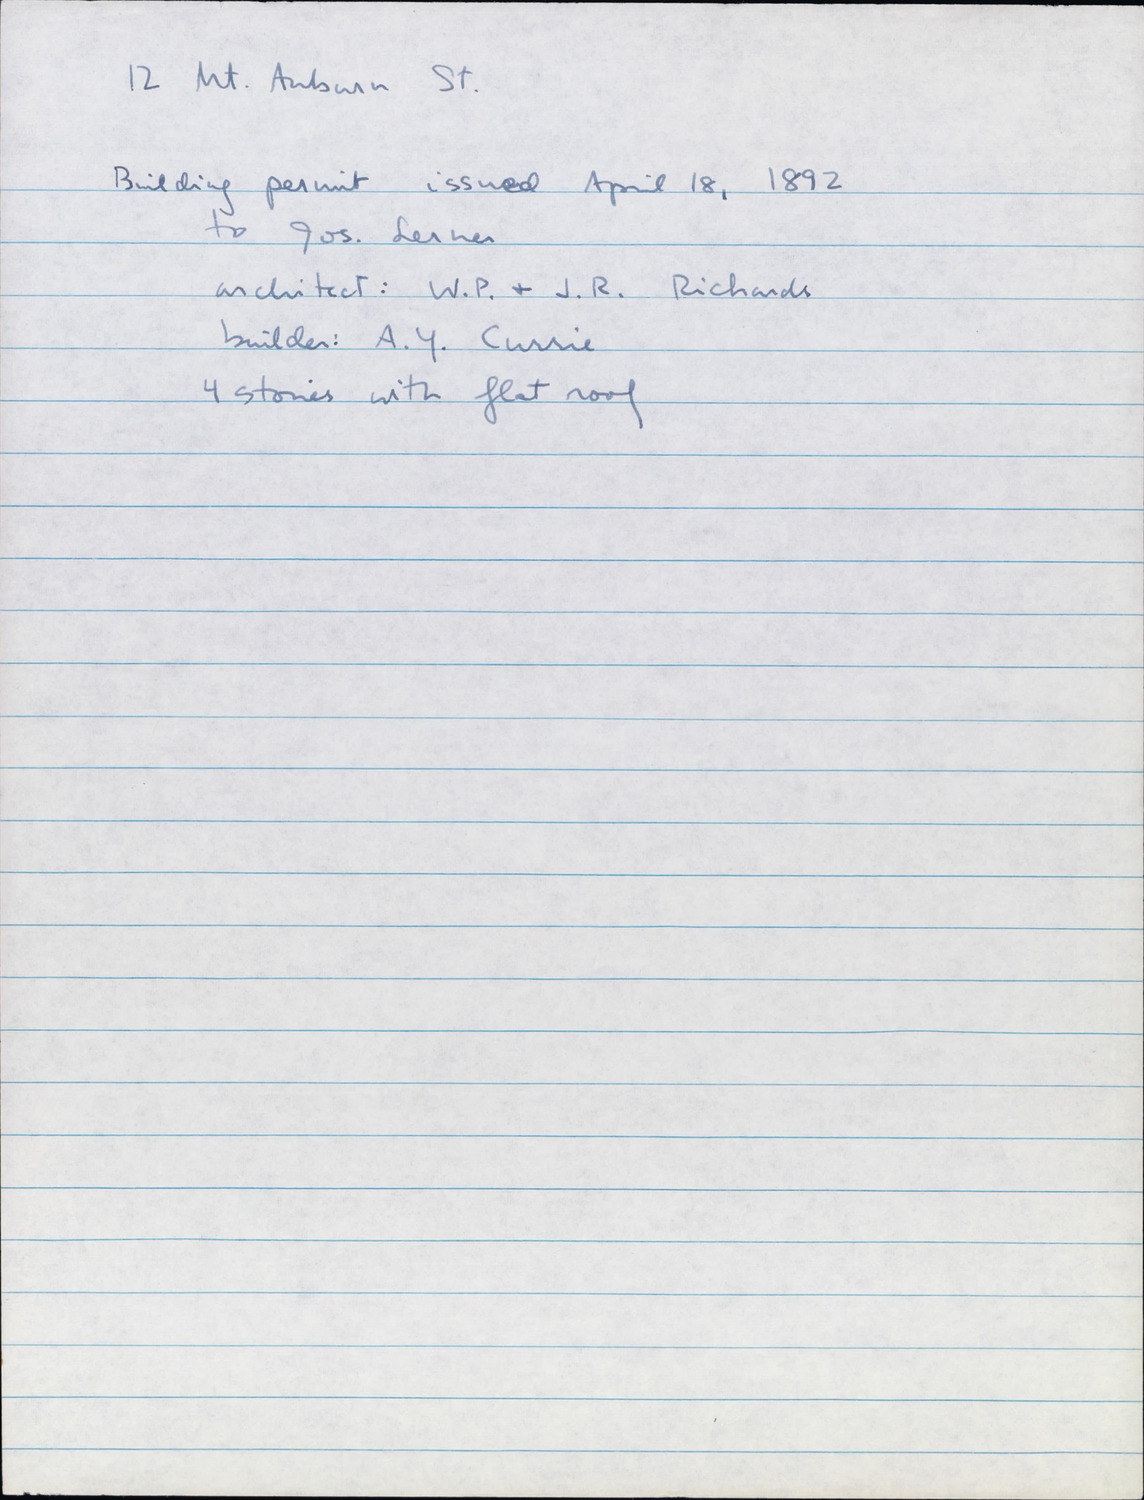 12 Mt. Auburn St.
Building permit issued April 18, 1892
to Jos. Lerner
architect: W.P. + J.R. Richards
builder: A.Y. Currie
4 stories with flat roof